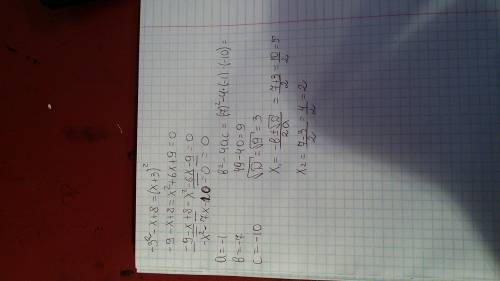 -3²-x+8=(x+3)²
-9-x+8=x²+6x+9=0
-9-x+8-x²-6x-9=0
-x²-7x-10=0 = 0
a=-1 b²-4ac=(7)²-4·(-1)·(-10)=
b=-7 49-40=9
c=-10 √D=√9=3
x₁=-b±√D/2a=7+3/2=10/2=5
x₂=7-3/2=4/2=2